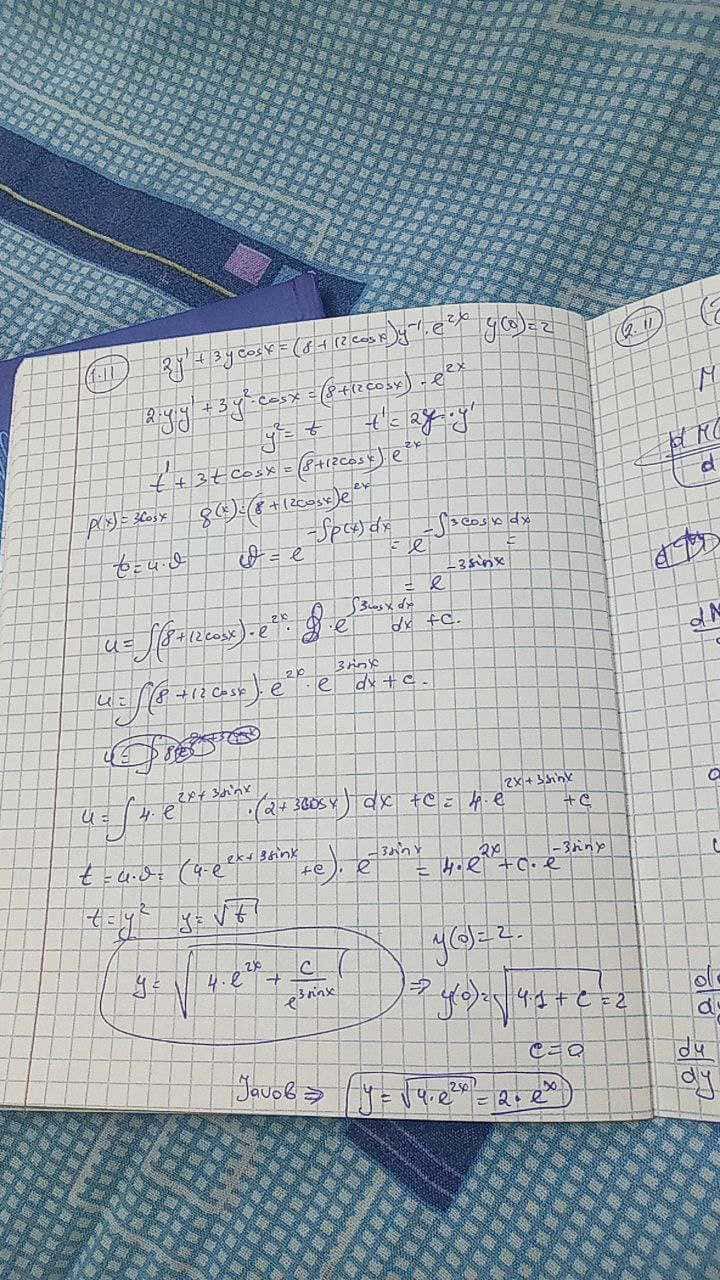 1.11 2y' + 3y cosx = (8+12cosx)y⁻¹·e^{2x} y(0)=2
2·y·y' + 3y²·cosx = (8+12cosx)·e^{2x}
y² = t t' = 2y·y'
t' + 3t cosx = (8+12cosx)·e^{2x}
p(x)=3cosx g(x)=(8+12cosx)e^{2x}
t=u·ϑ ϑ = e^{-∫p(x)dx} = e^{-∫3cosx dx} =
= e^{-3sinx}
u = ∫(8+12cosx)·e^{2x}·e^{∫3cosx dx} dx + c.
u = ∫(8+12cosx)·e^{2x}·e^{3sinx} dx + c.
u = ∫4·e^{2x+3sinx}·(2+3cosx) dx + c = 4·e^{2x+3sinx} + c
t = u·ϑ = (4·e^{2x+3sinx} + c)·e^{-3sinx} = 4·e^{2x} + c·e^{-3sinx}
t = y² y = √t
y = √(4·e^{2x} + c/e^{3sinx})
y(0)=2.
⇒ y(0)=√(4·1+c) = 2
c=0
Javob ⇒ y = √(4·e^{2x}) = 2·e^{x}
2.11
M
du
dy